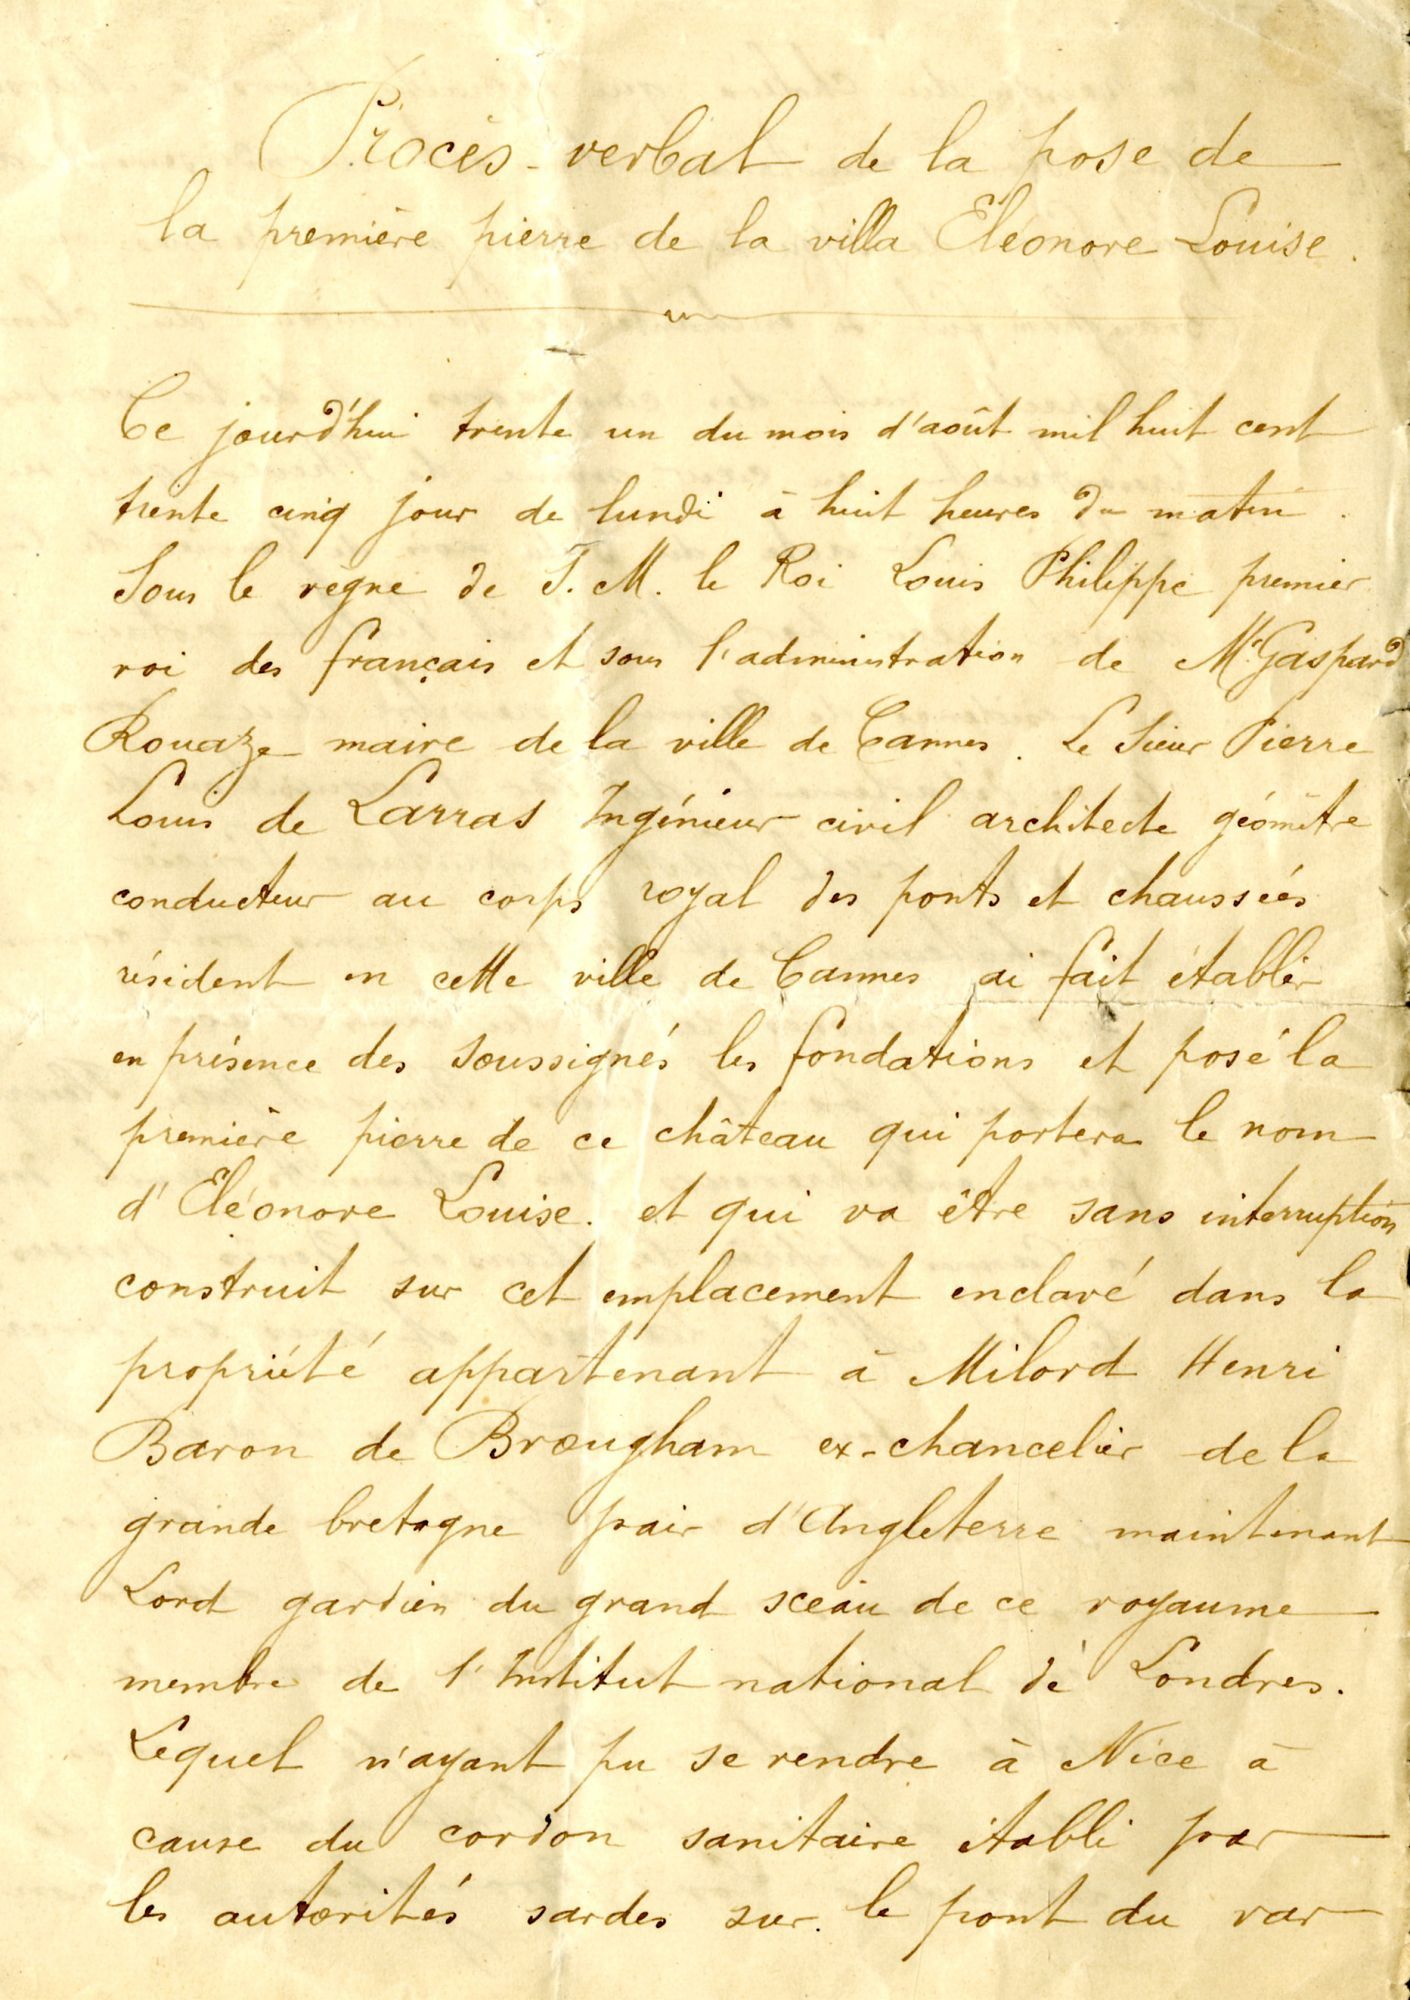 Procès-verbal de la pose de
la première pierre de la villa Eléonore Louise.
Ce jourd'hui trente un du mois d'août mil huit cent
trente cinq jour de lundi à huit heures du matin.
Sous le règne de S. M. le Roi Louis Philippe premier
roi des français et sous l'administration de Mr Gaspard
Rouaze maire de la ville de Cannes. Le Sieur Pierre
Louis de Larras Ingénieur civil architecte géomètre
conducteur au corps royal des ponts et chaussées
résident en cette ville de Cannes ai fait établir
en présence des soussignés les fondations et posé la
première pierre de ce château qui portera le nom
d'Eléonore Louise. et qui va être sans interruption
construit sur cet emplacement enclavé dans la
propriété appartenant à Milord Henri
Baron de Brougham ex-chancelier de la
grande bretagne pair d'Angleterre maintenant
Lord gardien du grand sceau de ce royaume
membre de l'Institut national de Londres.
Lequel n'ayant pu se rendre à Nice à
cause du cordon sanitaire établi par
les autorités sardes sur le pont du var